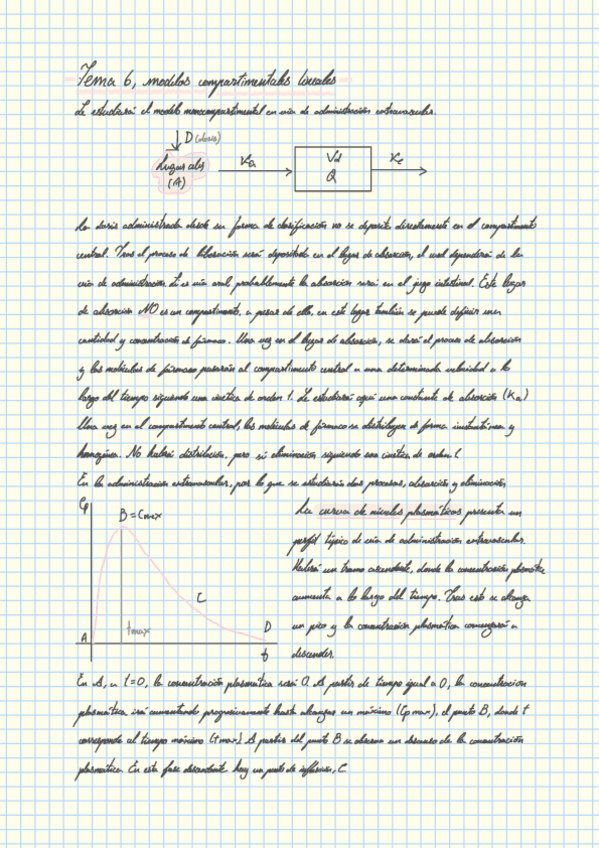 Tema 6, modelos compartimentales lineales
Se estudiará el modelo monocompartimental en vía de administración extravascular.
D (dosis)
Lugar abs
(A)
Ka
Vd
Q
Ke
La dosis administrada desde su forma de dosificación no se deposita directamente en el compartimento
central. Tras el proceso de liberación será depositada en el lugar de absorción, el cual dependerá de la
vía de administración. Si es vía oral probablemente la absorción será en el jugo intestinal. Este lugar
de absorción NO es un compartimento, a pesar de ello, en este lugar también se puede definir una
cantidad y concentración de fármaco. Una vez en el lugar de absorción, se dará el proceso de absorción
y las moléculas de fármaco pasarán al compartimento central a una determinada velocidad a lo
largo del tiempo siguiendo una cinética de orden 1. Se estudiará aquí una constante de absorción (Ka)
Una vez en el compartimento central, las moléculas de fármaco se distribuyen de forma instantánea y
homogénea. No habrá distribución, pero sí eliminación siguiendo una cinética de orden 1
En la administración extravascular, por lo que se estudiarán dos procesos, absorción y eliminación
Cp
B = Cmax
C
tmax
A
D
t
La curva de niveles plasmáticos presenta un
perfil típico de vía de administración extravascular.
Habrá un tramo ascendente, donde la concentración plasmática
aumenta a lo largo del tiempo. Tras esto se alcanza
un pico y la concentración plasmática comenzará a
descender.
En A, a t=0, la concentración plasmática será 0. A partir de tiempo igual a 0, la concentración
plasmática irá aumentando progresivamente hasta alcanzar un máximo (Cp max), el punto B, donde t
corresponde al tiempo máximo (t max) A partir del punto B se observa un descenso de la concentración
plasmática. En esta fase descendente hay un punto de inflexión, C